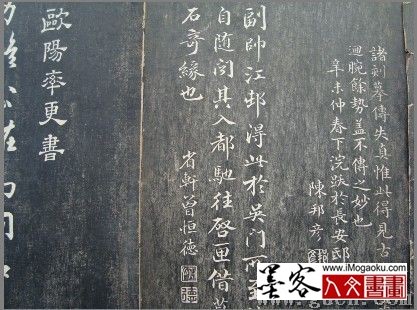 諸刻摹傳失真惟此得見古
迴腕餘勢蓋不傳之妙也
辛未仲春下浣跋於長安邸
陳邦彥
副帥江邨得此於吳门而至
自随闻其入都馳往啓匣借
石奇緣也
省軒曾恒德
歐陽率更書
墨客
www.iMogaoku.com
人文書畫